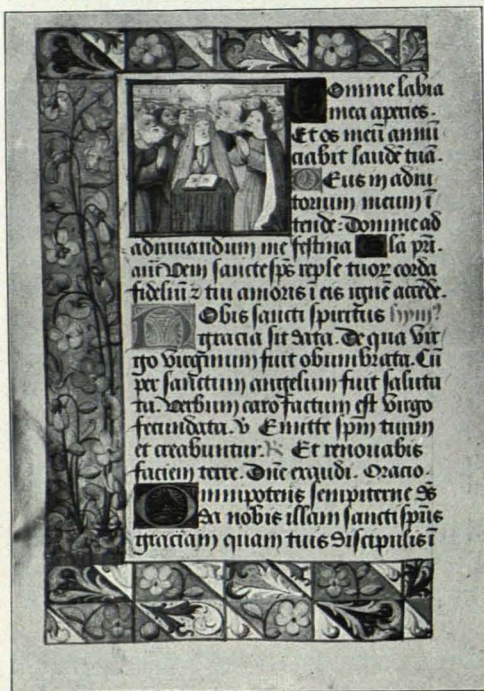 Domine labia
mea aperies.
Et os meū annū
ciabit laudē tuā.
Deus in adiu
torium meum ī
tende: Domine ad
adiuuandum me festina Gla pri.
añ Veni sancte sps̄ reple tuoꝝ corda
fideliū ⁊ tui amoris ī eis ignē accēde.
Nobis sancti spiritus hym?
gracia sit data. De qua vir
go virginum fuit obumbrata. Cū
per sanctum angelum fuit saluta
ta. Verbum caro factum est virgo
fecundata. v̄ Emitte spm̄ tuum
et creabuntur. R̄ Et renouabis
faciem terre. Dñe exaudi. Oracio.
Omnipotens sempiterne ds̄
da nobis illam sancti sps̄
graciam quam tuis discipulis ī